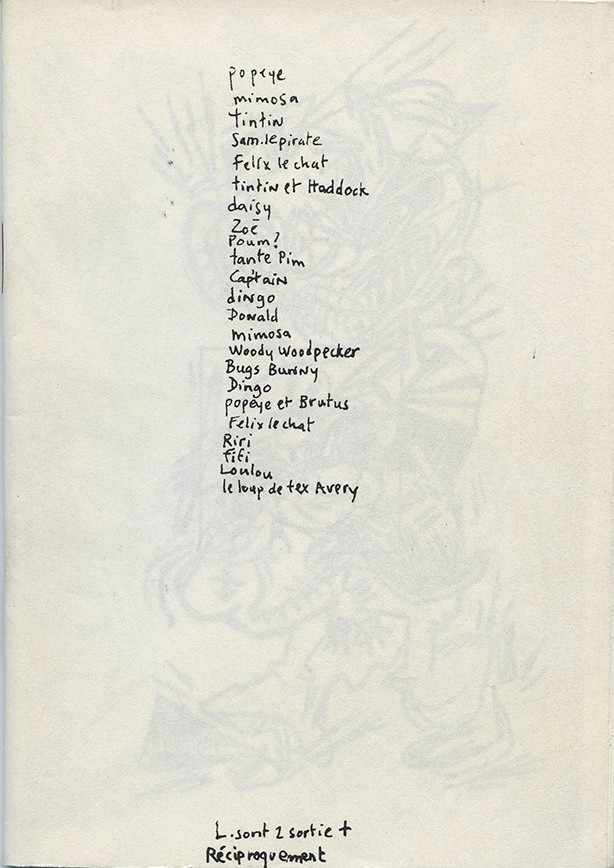 popeye
mimosa
tintin
Sam.le pirate
Felix le chat
tintin et Haddock
daisy
Zoé
Poum?
tante Pim
Cap'tain
dingo
Donald
mimosa
Woody Woodpecker
Bugs Bunny
Dingo
popeye et Brutus
Felix le chat
Riri
fifi
Loulou
le loup de tex Avery
L.sont 2 sortie +
Réciproquement